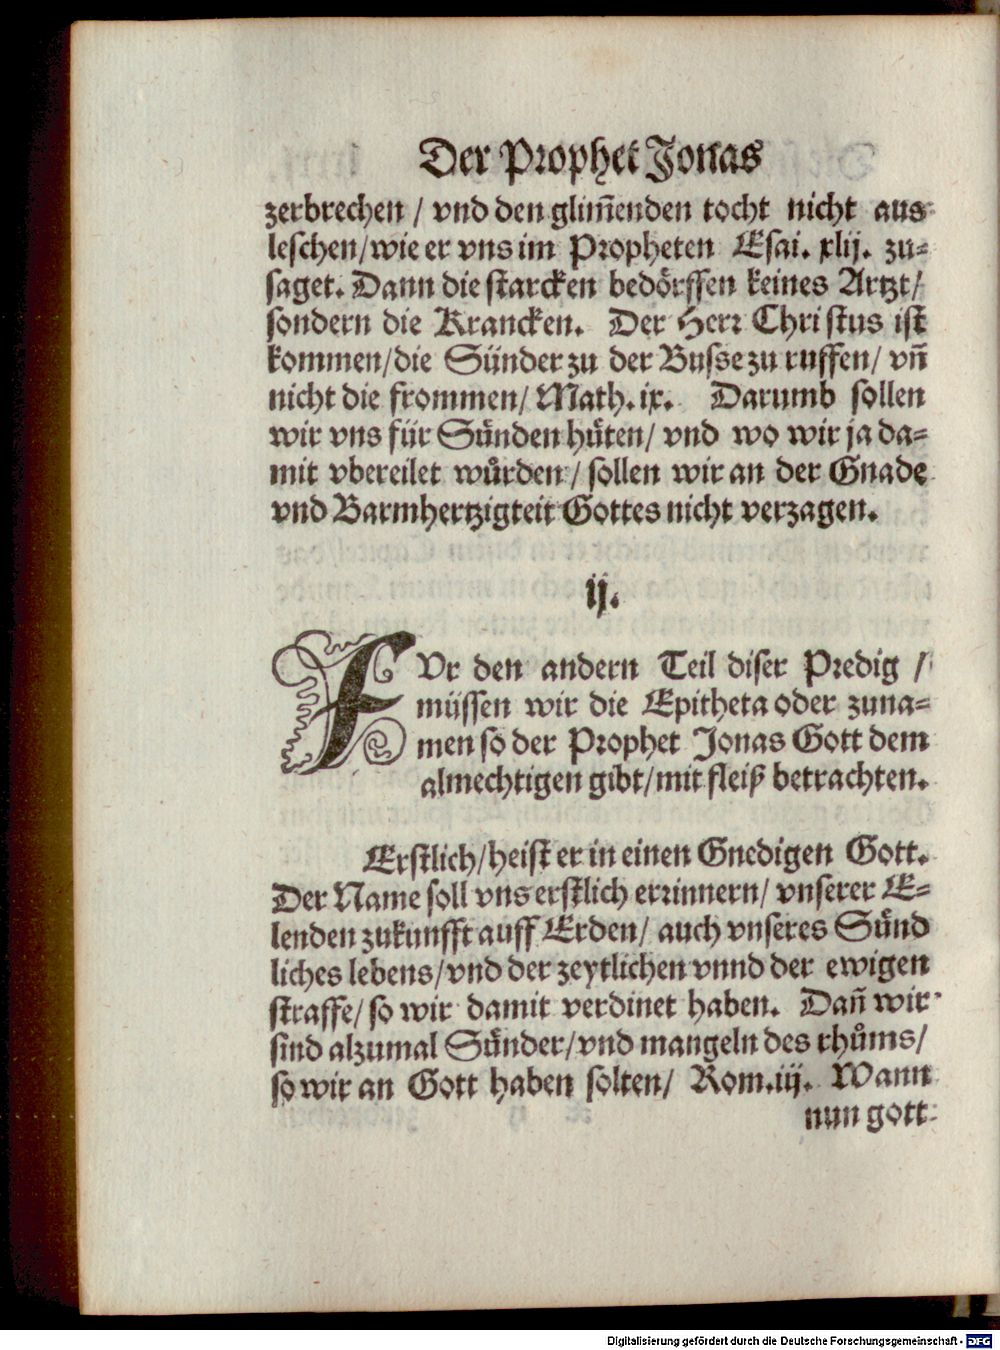 Der Prophet Jonas
zerbrechen / vnd den glim̃enden tocht nicht aus
leschen/wie er vns im Propheten Esai. xlij. zu=
saget. Dann die starcken bedörffen keines Artzt/
sondern die Krancken. Der Herr Christus ist
kommen/die Sünder zu der Busse zu ruffen/ vñ
nicht die frommen/ Math. ix. Darumb sollen
wir vns für Sünden hüten/ vnd wo wir ja da=
mit vbereilet wůrden / sollen wir an der Gnade
vnd Barmhertzigteit Gottes nicht verzagen.
ij.
FVr den andern Teil diser Predig /
müssen wir die Epitheta oder zuna=
men so der Prophet Jonas Gott dem
almechtigen gibt/mit fleiß betrachten.
Erstlich/heist er in einen Gnedigen Gott.
Der Name soll vns erstlich errinnern/ vnserer E=
lenden zukunfft auff Erden/ auch vnseres Sünd
liches lebens/vnd der zeytlichen vnnd der ewigen
straffe/ so wir damit verdinet haben. Dañ wir
sind alzumal Sünder/vnd mangeln des rhůms/
so wir an Gott haben solten/ Rom. iij. Wann
nun gott
Digitalisierung gefördert durch die Deutsche Forschungsgemeinschaft - DFG